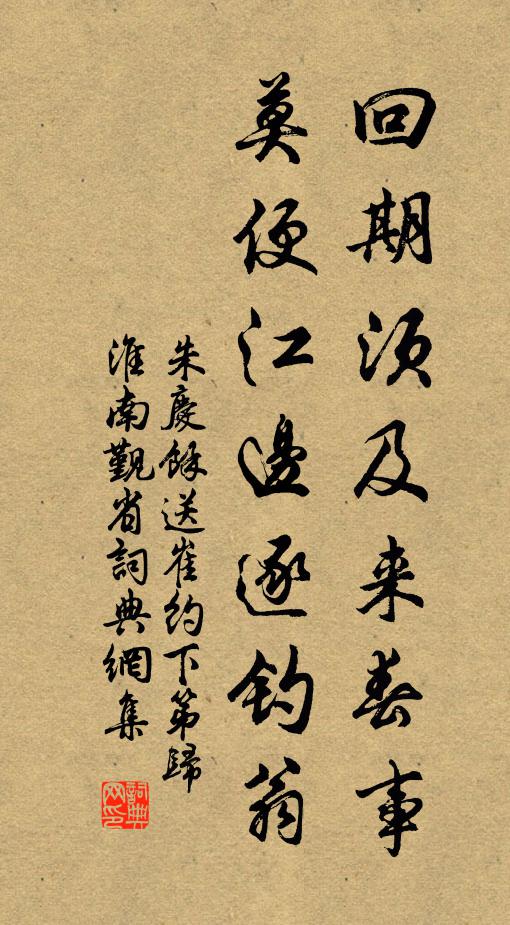 回期须及来春事
莫便江邊逐钓翁
朱慶餘送崔约下第歸
淮南觐省詞典網集
詞典
网印